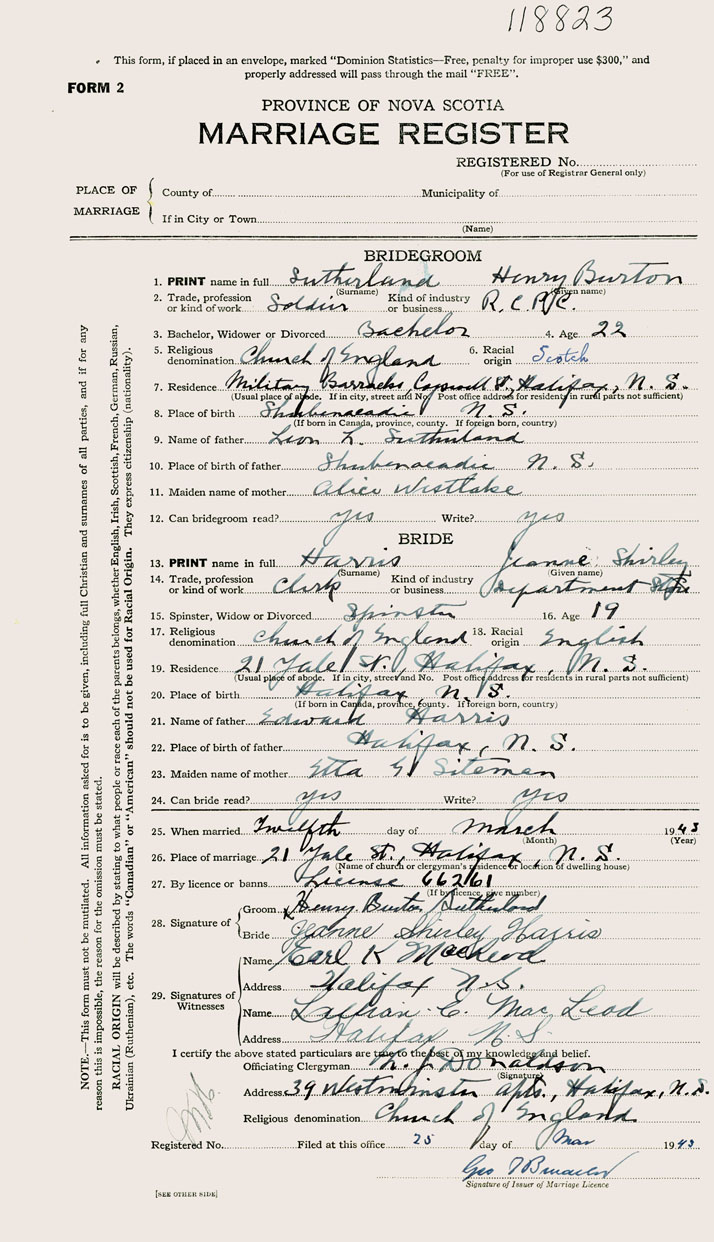 118823
This form, if placed in an envelope, marked "Dominion Statistics—Free, penalty for improper use $300," and
properly addressed will pass through the mail "FREE".
FORM 2
PROVINCE OF NOVA SCOTIA
MARRIAGE REGISTER
REGISTERED No.
(For use of Registrar General only)
PLACE OF MARRIAGE
County of Municipality of
If in City or Town
(Name)
BRIDEGROOM
1. PRINT name in full Sutherland Henry Burton
(Surname) (Given name)
2. Trade, profession or kind of work Soldier Kind of industry or business R.C.A.
3. Bachelor, Widower or Divorced Bachelor 4. Age 22
5. Religious denomination Church of England 6. Racial origin Scotch
7. Residence Military Barracks, St., Halifax, N.S.
(Usual place of abode. If in city, street and No. Post office address for residents in rural parts not sufficient)
8. Place of birth Shubenacadie N.S.
(If born in Canada, province, county. If foreign born, country)
9. Name of father Leon L. Sutherland
10. Place of birth of father Shubenacadie N.S.
11. Maiden name of mother Alice Westlake
12. Can bridegroom read? yes Write? yes
BRIDE
13. PRINT name in full Harris Jeanne Shirley
(Surname) (Given name)
14. Trade, profession or kind of work Clerk Kind of industry or business Department Store
15. Spinster, Widow or Divorced Spinster 16. Age 19
17. Religious denomination Church of England 18. Racial origin English
19. Residence 21 Yale St., Halifax, N.S.
(Usual place of abode. If in city, street and No. Post office address for residents in rural parts not sufficient)
20. Place of birth Halifax, N.S.
(If born in Canada, province, county. If foreign born, country)
21. Name of father Edward Harris
22. Place of birth of father Halifax, N.S.
23. Maiden name of mother Etta G. Sitemen
24. Can bride read? yes Write? yes
25. When married Twelfth day of March 1943
(Month) (Year)
26. Place of marriage 21 Yale St., Halifax, N.S.
(Name of church or clergyman's residence or location of dwelling house)
27. By licence or banns License 66261
(If by licence, give number)
28. Signature of
Groom Henry Burton Sutherland
Bride Jeanne Shirley Harris
29. Signatures of Witnesses
Name Earl K MacLeod
Address Halifax N.S.
Name E. MacLeod
Address Halifax N.S.
I certify the above stated particulars are true to the best of my knowledge and belief.
Officiating Clergyman J. Donaldson
(Signature)
Address 39 Westminster Apts., Halifax, N.S.
Religious denomination Church of England
Registered No. Filed at this office 25 day of Mar 1943
Signature of Issuer of Marriage Licence
[SEE OTHER SIDE]
NOTE.—This form must not be mutilated. All information asked for is to be given, including full Christian and surnames of all parties, and if for any
reason this is impossible, the reason for the omission must be stated.
RACIAL ORIGIN will be described by stating to what people or race each of the parents belongs, whether English, Irish, Scottish, French, German, Russian,
Ukrainian (Ruthenian), etc. The words "Canadian" or "American" should not be used for Racial Origin. They express citizenship (nationality).